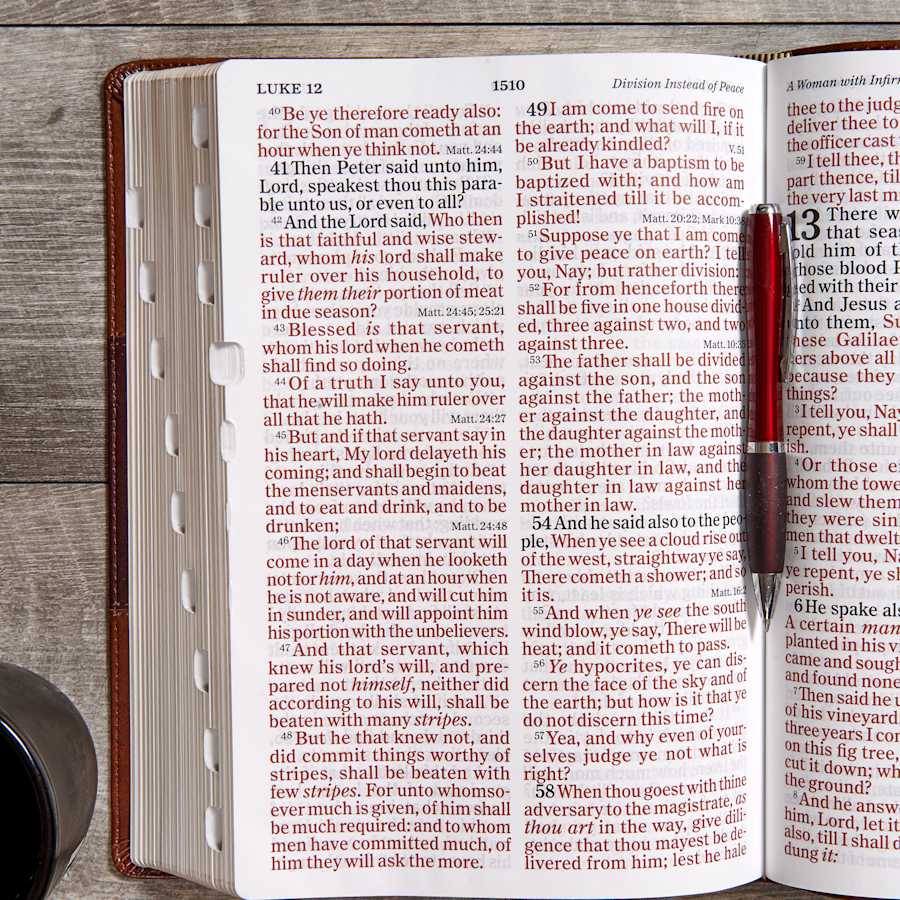 LUKE 12
1510
Division Instead of Peace
40 Be ye therefore ready also:
for the Son of man cometh at an
hour when ye think not. Matt. 24:44
41 Then Peter said unto him,
Lord, speakest thou this para-
ble unto us, or even to all?
42 And the Lord said, Who then
is that faithful and wise stew-
ard, whom his lord shall make
ruler over his household, to
give them their portion of meat
in due season? Matt. 24:45; 25:21
43 Blessed is that servant,
whom his lord when he cometh
shall find so doing.
44 Of a truth I say unto you,
that he will make him ruler over
all that he hath. Matt. 24:27
45 But and if that servant say in
his heart, My lord delayeth his
coming; and shall begin to beat
the menservants and maidens,
and to eat and drink, and to be
drunken; Matt. 24:48
46 The lord of that servant will
come in a day when he looketh
not for him, and at an hour when
he is not aware, and will cut him
in sunder, and will appoint him
his portion with the unbelievers.
47 And that servant, which
knew his lord's will, and pre-
pared not himself, neither did
according to his will, shall be
beaten with many stripes.
48 But he that knew not, and
did commit things worthy of
stripes, shall be beaten with
few stripes. For unto whomso-
ever much is given, of him shall
be much required: and to whom
men have committed much, of
him they will ask the more.
49 I am come to send fire on
the earth; and what will I, if it
be already kindled? V. 51
50 But I have a baptism to be
baptized with; and how am
I straitened till it be accom-
plished! Matt. 20:22; Mark 10:38
51 Suppose ye that I am come
to give peace on earth? I tell
you, Nay; but rather division:
52 For from henceforth there
shall be five in one house divid-
ed, three against two, and two
against three. Matt. 10:35
53 The father shall be divided
against the son, and the son
against the father; the moth-
er against the daughter, and
the daughter against the moth-
er; the mother in law against
her daughter in law, and the
daughter in law against her
mother in law.
54 And he said also to the peo-
ple, When ye see a cloud rise out
of the west, straightway ye say,
There cometh a shower; and so
it is. Matt. 16:2
55 And when ye see the south
wind blow, ye say, There will be
heat; and it cometh to pass.
56 Ye hypocrites, ye can dis-
cern the face of the sky and of
the earth; but how is it that ye
do not discern this time?
57 Yea, and why even of your-
selves judge ye not what is
right?
58 When thou goest with thine
adversary to the magistrate, as
thou art in the way, give dili-
gence that thou mayest be de-
livered from him; lest he hale
A Woman with Infirm
thee to the judg
deliver thee to
the officer cast
59 I tell thee, th
part thence, til
the very last m
13 There w
that seas
told him of th
whose blood P
with their
And Jesus a
unto them, Su
these Galilae
ers above all
because they
things?
3 I tell you, Nay
repent, ye shall
ish.
4 Or those ei
whom the towe
and slew them
they were sin
men that dwelt
5 I tell you, Na
ye repent, ye sh
perish.
6 He spake als
A certain man
planted in his vi
came and sough
and found none
7 Then said he u
of his vineyard,
three years I com
on this fig tree,
cut it down; wh
the ground?
8 And he answ
him, Lord, let it
also, till I shall d
dung it: